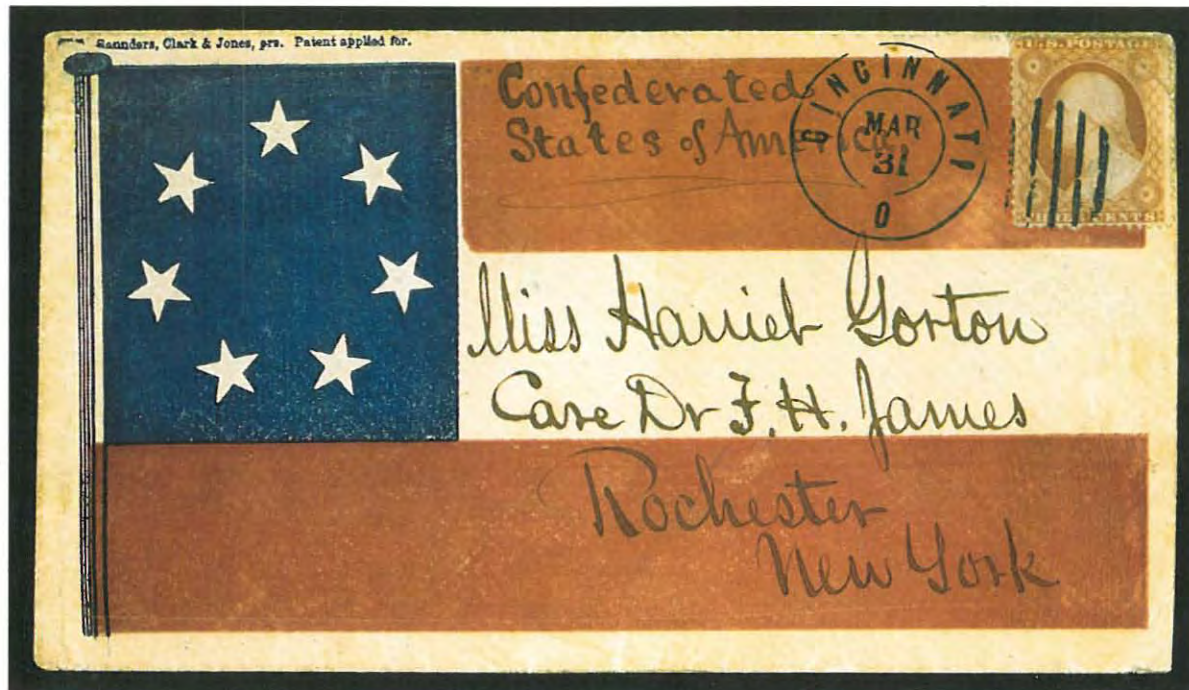 Saunders, Clark & Jones, prs. Patent applied for.
Confederated
States of America
CINCINNATI
MAR
31
O
U.S. POSTAGE
CENTS
Miss Harriet Gorton
Care Dr F. H. James
Rochester
New York